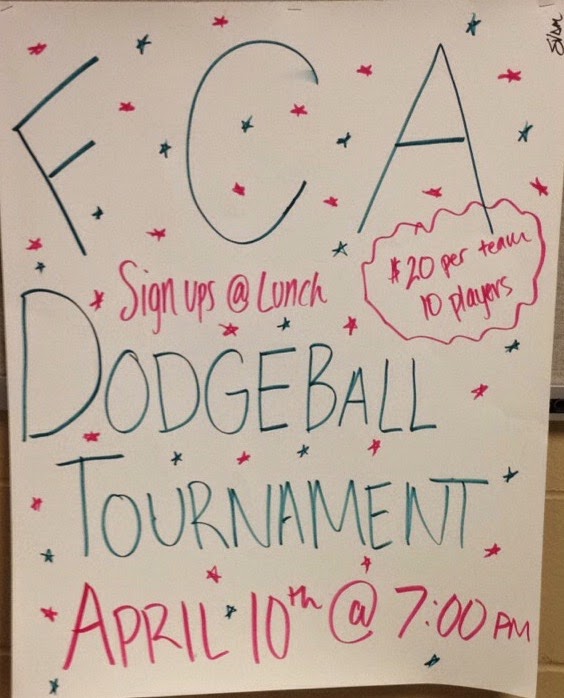 FCA
$20 per team
10 players
Sign ups @ Lunch
DODGEBALL
TOURNAMENT
APRIL 10th @ 7:00 PM